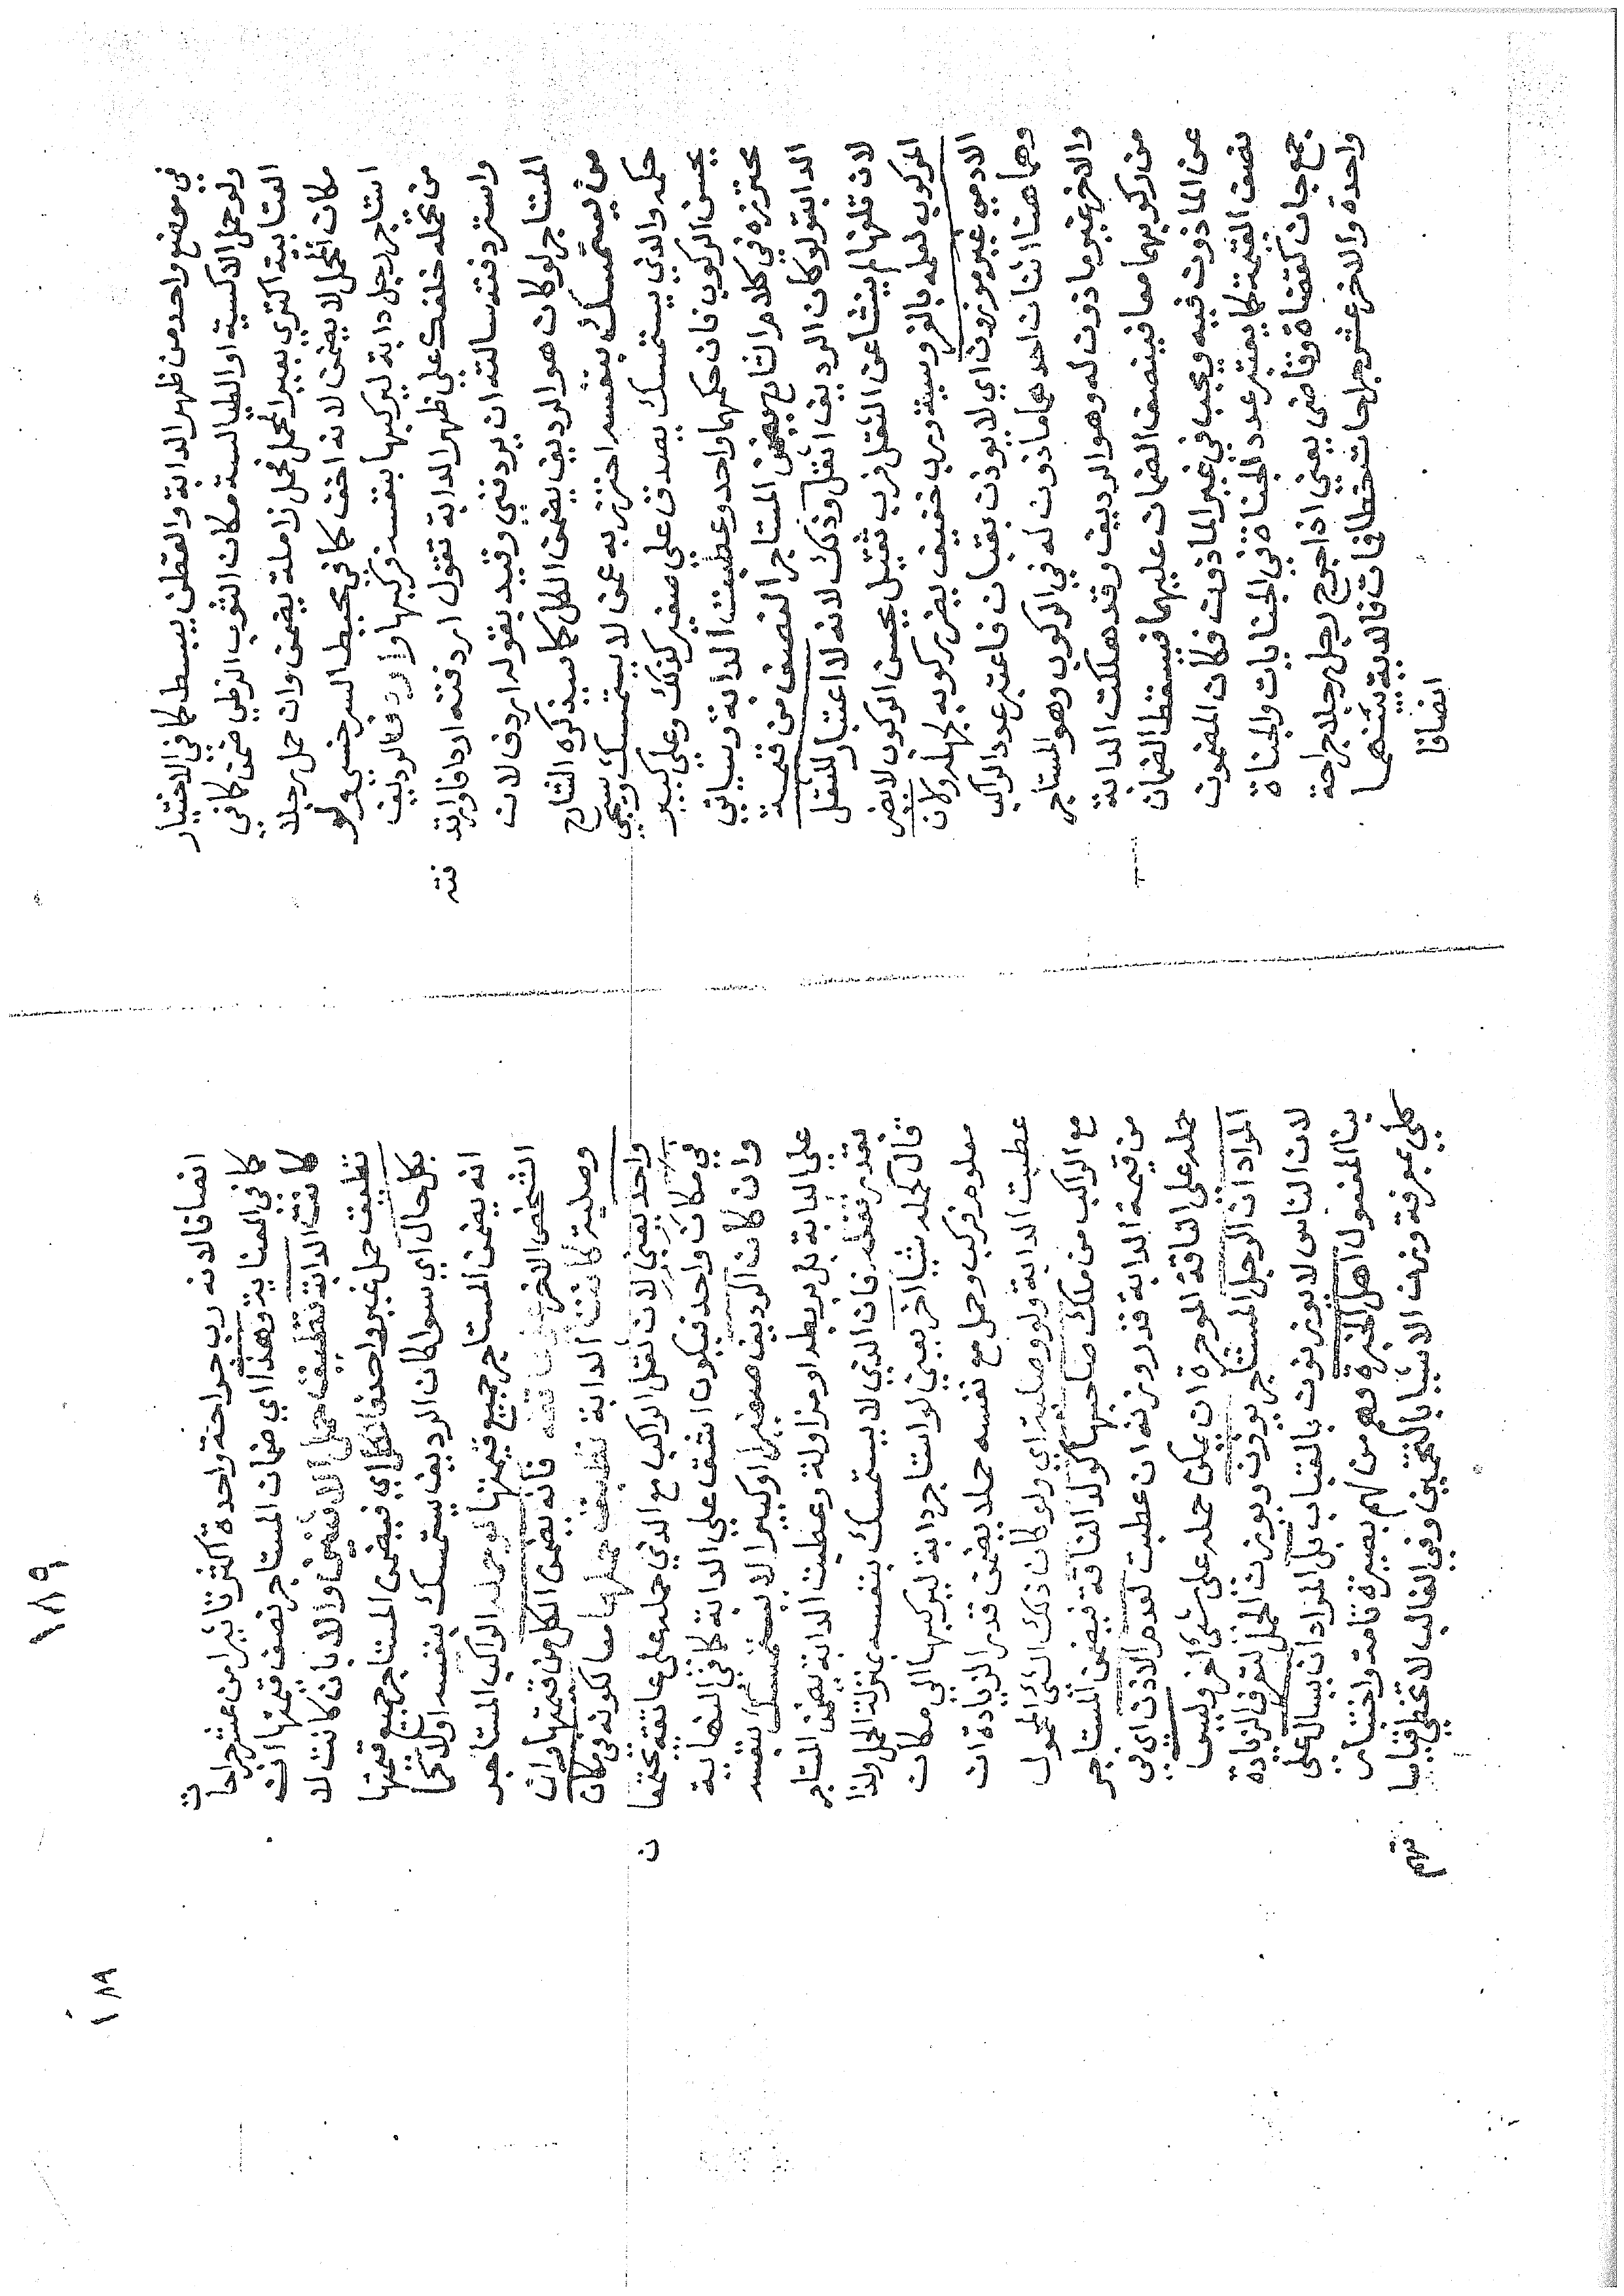 في موضع واحد من ظهر الدابة والقطن يبسط كما في الاختيار
ولو حمل الاكسية او الطيالسة مكان الثوب الزطي ضمن كما في
العتابية اكتري بعير المحمل فحمل زاملة يضمن وان حمل رجلا
مكان المحمل لا يضمن لانه اخف كما في محيط السرخسي ولو
استاجر رجل دابة ليركبها بنفسه فركبها واردف الرديف
من تحمله خلفك على ظهر الدابة تقول اردفته اردافا وارتد
فته
واستردفته سالته ان يردفني وقيد بقوله اردف لان
المستاجر لو كان هو الرديف يضمن الكل كما سيذكره الشارح
من يستمسك بنفسه احترز به عن لا يستمسك وسيجي
حكمه والذي يستمسك يصدق على صغير كذلك وعلى كبير
يحسن الركوب فان حكمهما واحد وعطبت الدابة وسياتي
محترزه في كلام الشارح يضمن المستاجر النصف من قيمة
الدابة ولو كان الرديف اثقل وذلك لانه لا اعتبار للثقل
لان تلفها لم ينشا عن الثقل فرب ثقيل يحسن الركوب لا يضر
المركوب لعلمه بالفروسية ورب خفيف يضر ركوبه لجهله ولان
الادمي غير موزون اي لا يوزن بقبان فاعتبر عدد الراكب
وهما هنا اثنان احدهما ماذون له في الركوب وهو المستاجر
والاخر غير ماذون له وهو الرديف وقد هلكت الدابة
من ركوبهما معا فينصف الضمان عليهما فيسقط الضمان
عن الماذون فيه ويجب في غير الماذون فكان المضمون
نصف القيمة كما يعتبر عدد الجناة في الجنايات والجناة
جمع جان كقضاة وقاض يعني اذا جرح رجل رجلا جراحة
واحدة والاخر عشر جراحات خطا فمات فالدية بينهما
انصافا
١٨٩
انصافا لانه رب جراحة واحدة اكثر تاثيرا من عشر جراحا
ت
كما في العناية وهذا اي ضمان المستاجر نصف قيمتها ان
كانت الدابة تطيق حمل الاثنين والا بان كانت لا
تطيق حمل غير واحد فالكل اي فيضمن المستاجر جميع قيمتها
بكل حال اي سواء كان الرديف يستمسك بنفسه او لا كما
انه يضمن المستاجر جميع قيمتها لو حمله الراكب المستاجر
الشخص الاخر على عاتقه فانه يضمن الكل من قيمتها وان
وصلية كانت الدابة تطيق حملهما معا لكونه في مكان
واحد يعني لان ثقل الراكب مع الذي حمله على عاتقه يجتمعا
ن
في مكان واحد فيكون اشق على الدابة كما في النهاية
وان كان الرديف صغيرا او كبيرا لا يستمسك بنفسه
على الدابة بل بربط او مزاولة وعطبت الدابة يضمن المستاجر
بقدر ثقله فان الذي لا يستمسك بنفسه بمنزلة الحمل ولذا
قال كحمله شيا اخر يعني لو استاجر دابة ليركبها الى مكان
معلوم فركب وحمل مع نفسه حملا يضمن قدر الزيادة ان
عطبت الدابة ولو وصلية اي ولو كان ذلك الشي المحمول
مع الراكب من ملك صاحبها كولد الناقة فيضمن المستاجر
من قيمة الدابة قدر وزنه ان عطبت لعدم الاذن اي في
حمله على الناقة الموجرة ان يمكن حمله على شي اخر وليس
المراد ان الرجل المستاجر يوزن ويوزن الحمل لتعرف الزيادة
لان الناس لا يوزنون بالقبان بل المراد ان يسال على
بنا المفعول اهل الخبرة وهم من لهم بصيرة تامة واختبار
كلي بمعرفة وزن الاشيا بالتخمين وفي الغالب لا تخطي قياسا
تهم
١٨٩